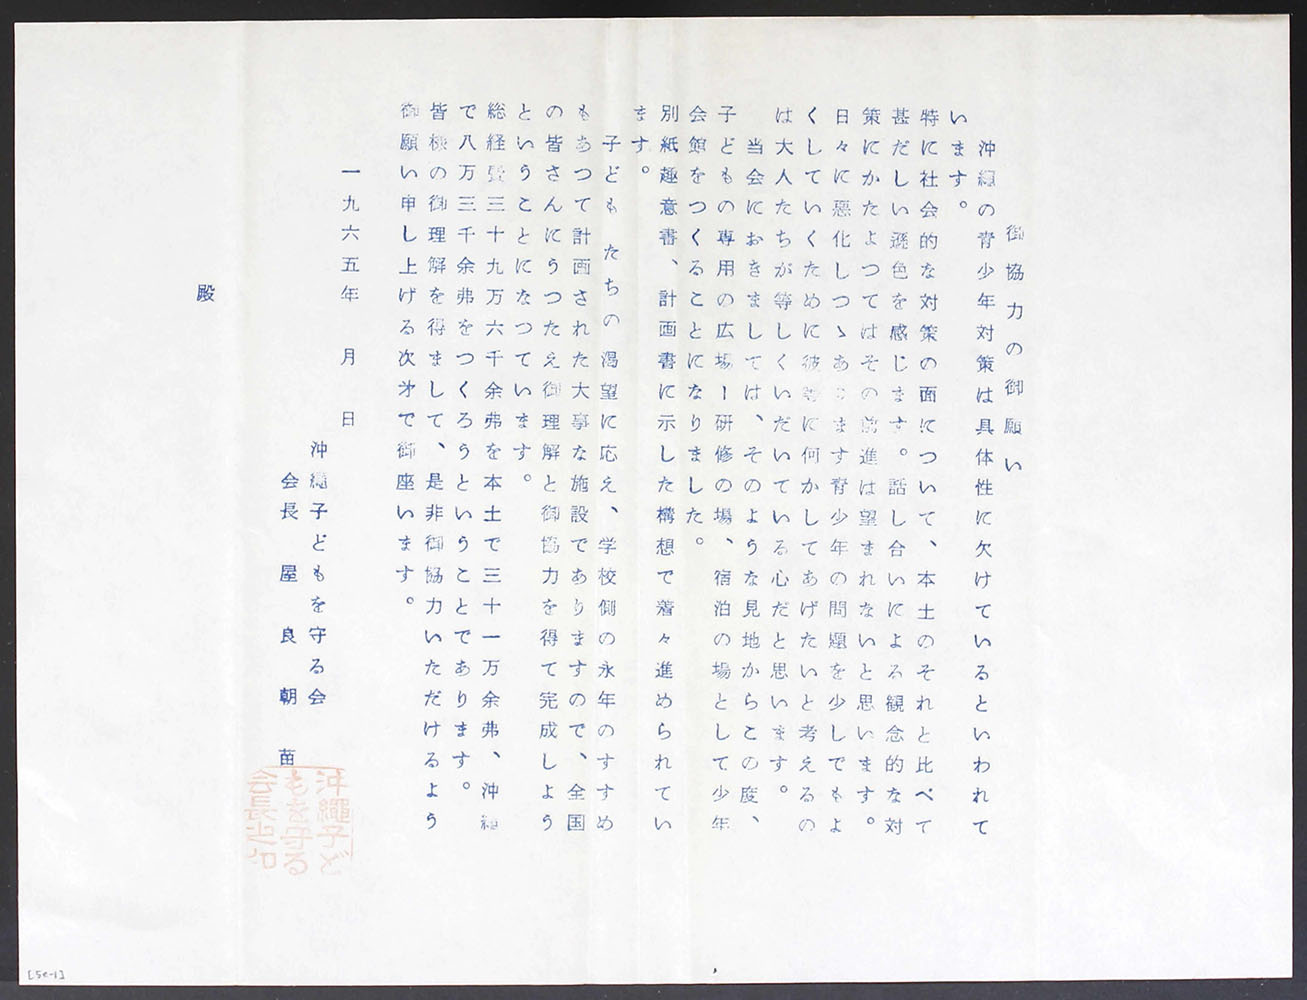 御協力の御願い
沖繩の青少年対策は具体性に欠けているといわれて
います。
特に社会的な対策の面について、本土のそれと比べて
甚だしい遜色を感じます。話し合いによる観念的な対
策にかたよつてはその前進は望まれないと思います。
日々に悪化しつゝあります青少年の問題を少しでもよ
くしていくために彼等に何かしてあげたいと考えるの
は大人たちが等しくいだいている心だと思います。
当会におきましては、そのような見地からこの度、
子どもの専用の広場ー研修の場、宿泊の場として少年
会館をつくることになりました。
別紙趣意書、計画書に示した構想で着々進められてい
ます。
子どもたちの渇望に応え、学校側の永年のすすめ
もあつて計画された大事な施設でありますので、全国
の皆さんにうつたえ御理解と御協力を得て完成しよう
ということになつています。
総経費三十九万六千余弗を本土で三十一万余弗、沖繩
で八万三千余弗をつくろうということであります。
皆様の御理解を得まして、是非御協力いただけるよう
御願い申し上げる次才で御座います。
一九六五年 月 日
沖繩子どもを守る会
会長 屋良朝苗
沖繩子ど
もを守る
会長之印
殿
[5e-1]